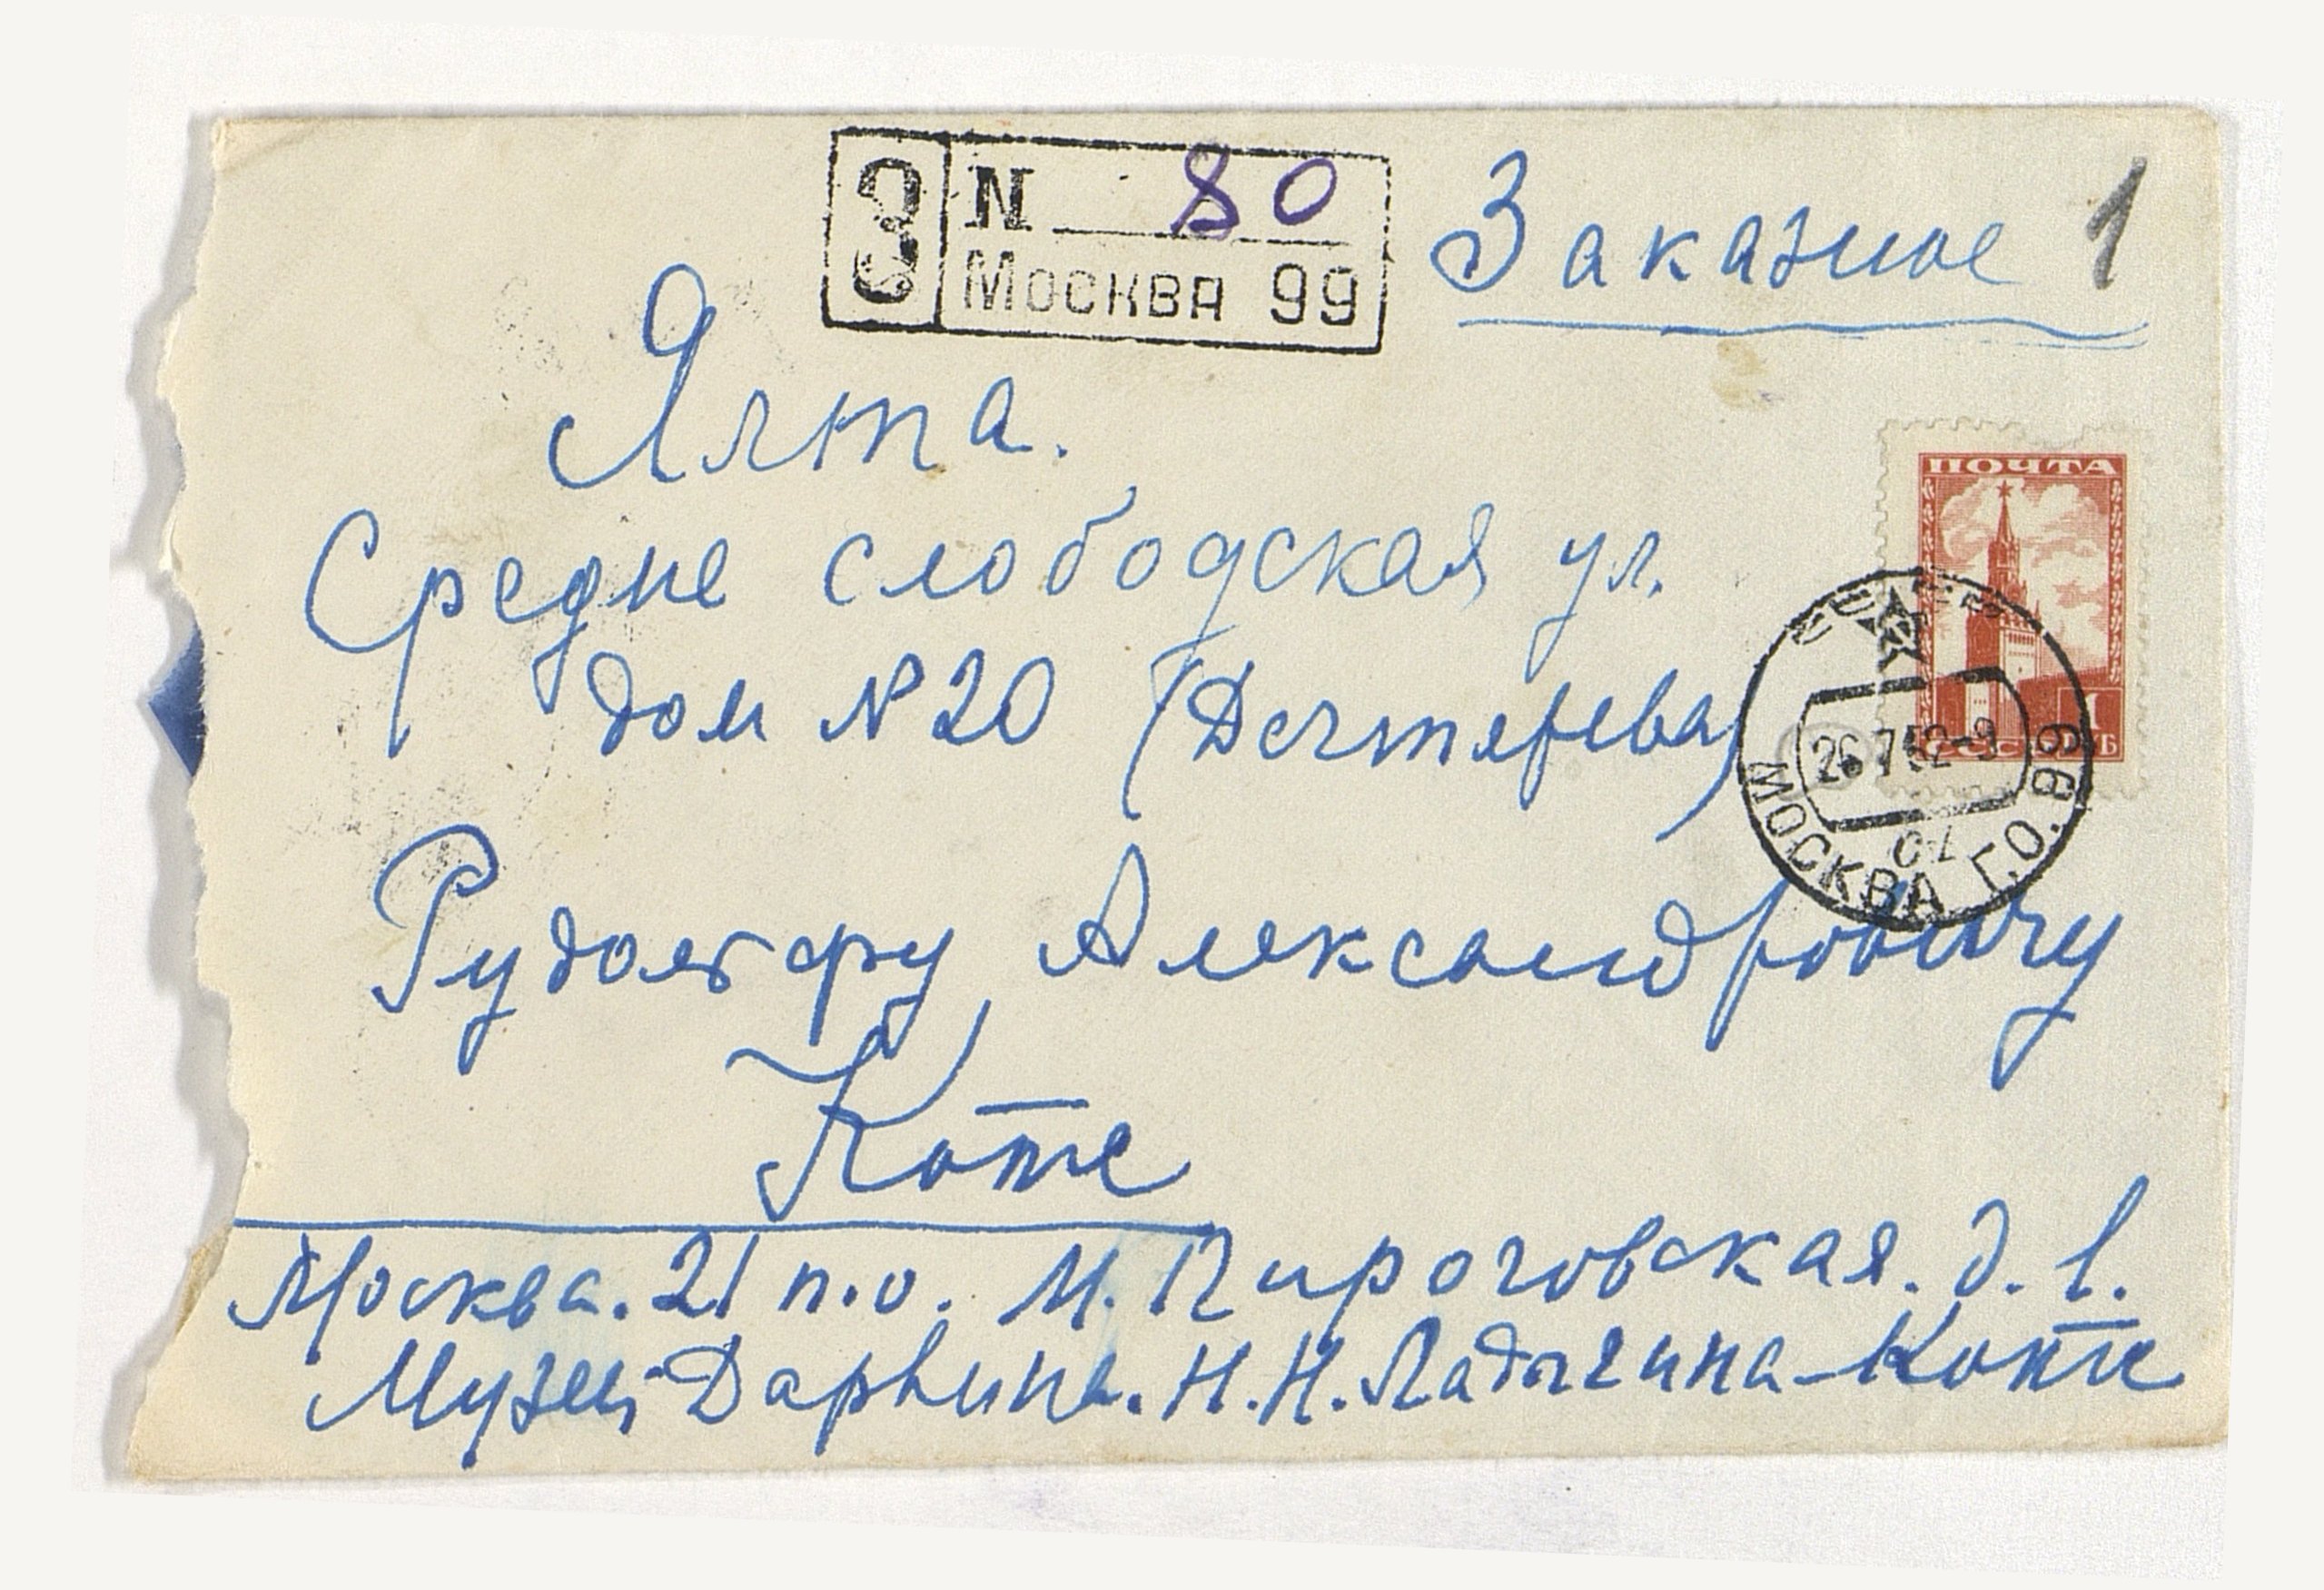 З N 80
Москва 99
Заказное 1
Ялта.
Средне слободская ул.
дом № 20 (Дегтярева)
ПОЧТА
1
26.7.52-9
МОСКВА Г.О. 99
Рудольфу Александровичу
Котс
Москва. 21 п.о. М. Пироговская. д. 1.
Музей Дарвина. Н.Н. Ладыгина-Котс